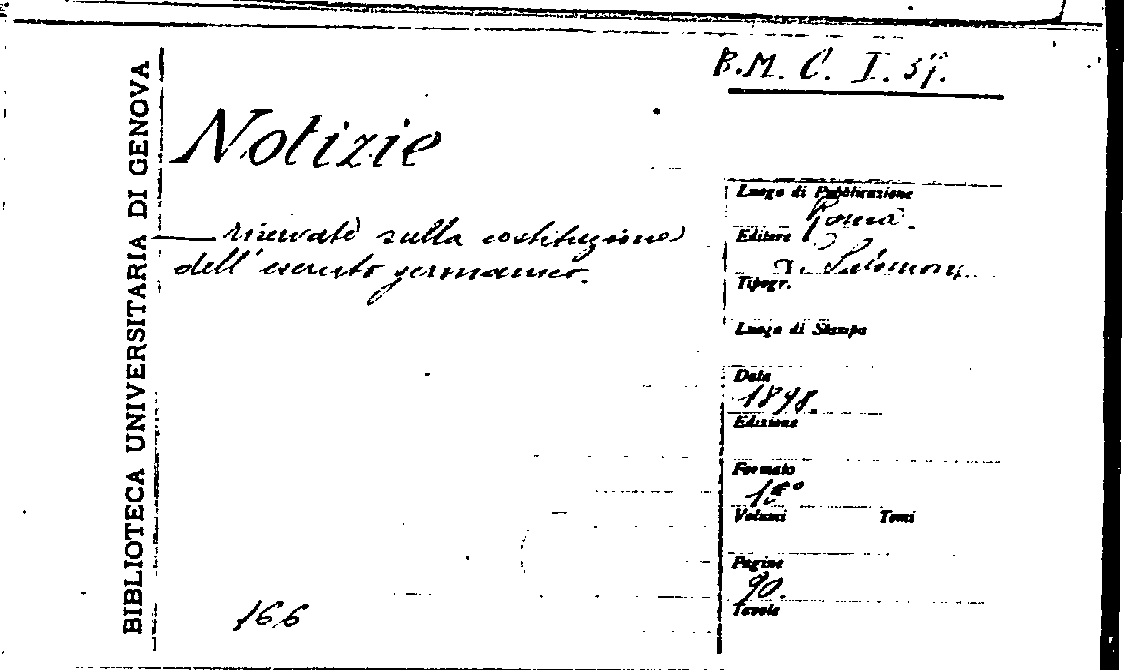 BIBLIOTECA UNIVERSITARIA DI GENOVA
B. M. C. I. 37.
Notizie
— riservate sulla costituzione
dell' esercito germanico.
Luogo di Pubblicazione
Roma.
Editore
Tipogr.
Luogo di Stampa
Data
1898.
Edizione
Formato
Volumi Tomi
Pagine
90.
Tavole
166